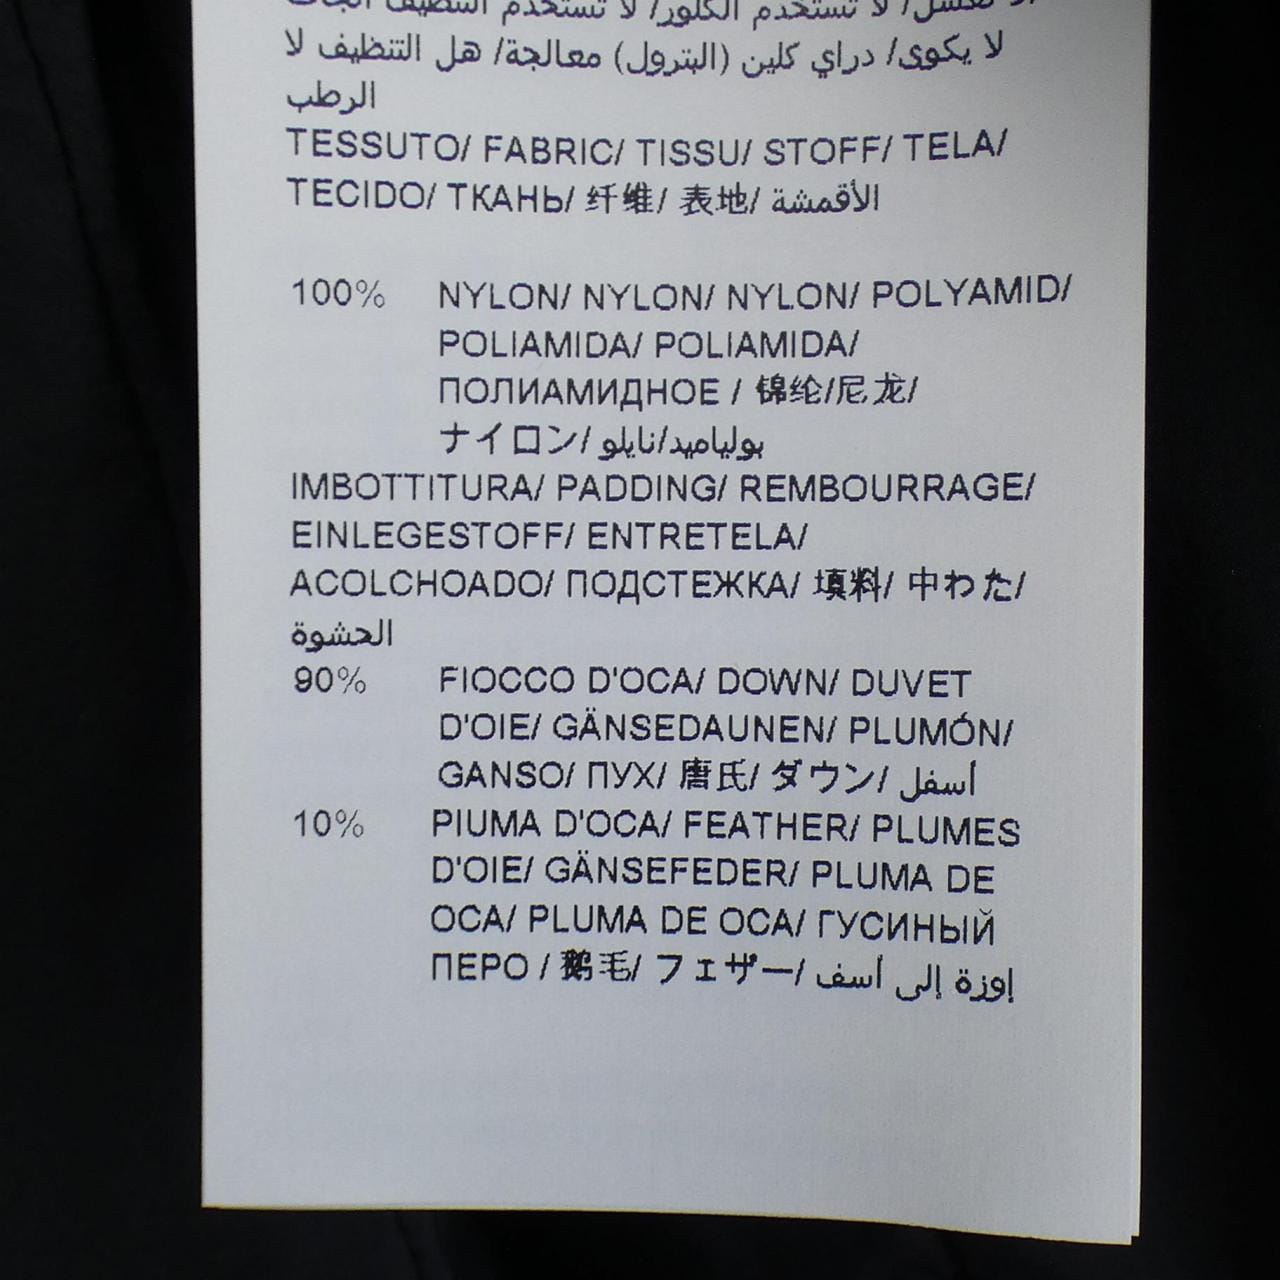 لا تغسل/ لا تستخدم الكلور/ لا تستخدم التنظيف الجاف
لا يكوى/ دراي كلين (البترول) معالجة/ هل التنظيف لا
الرطب
TESSUTO/ FABRIC/ TISSU/ STOFF/ TELA/
TECIDO/ ТКАНЬ/ 纤维/ 表地/ الأقمشة
100% NYLON/ NYLON/ NYLON/ POLYAMID/
POLIAMIDA/ POLIAMIDA/
ПОЛИАМИДНОЕ / 锦纶/尼龙/
ナイロン/ بولياميد/نايلو
IMBOTTITURA/ PADDING/ REMBOURRAGE/
EINLEGESTOFF/ ENTRETELA/
ACOLCHOADO/ ПОДСТЕЖКА/ 填料/ 中わた/
الحشوة
90% FIOCCO D'OCA/ DOWN/ DUVET
D'OIE/ GÄNSEDAUNEN/ PLUMÓN/
GANSO/ ПУХ/ 唐氏/ ダウン/ أسفل
10% PIUMA D'OCA/ FEATHER/ PLUMES
D'OIE/ GÄNSEFEDER/ PLUMA DE
OCA/ PLUMA DE OCA/ ГУСИНЫЙ
ПЕРО / 鹅毛/ フェザー/ إوزة إلى أسف